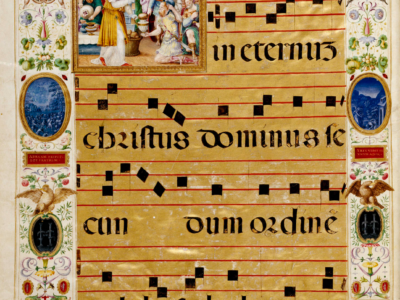 in eternuʒ
christus dominus se
cun dum ordinē